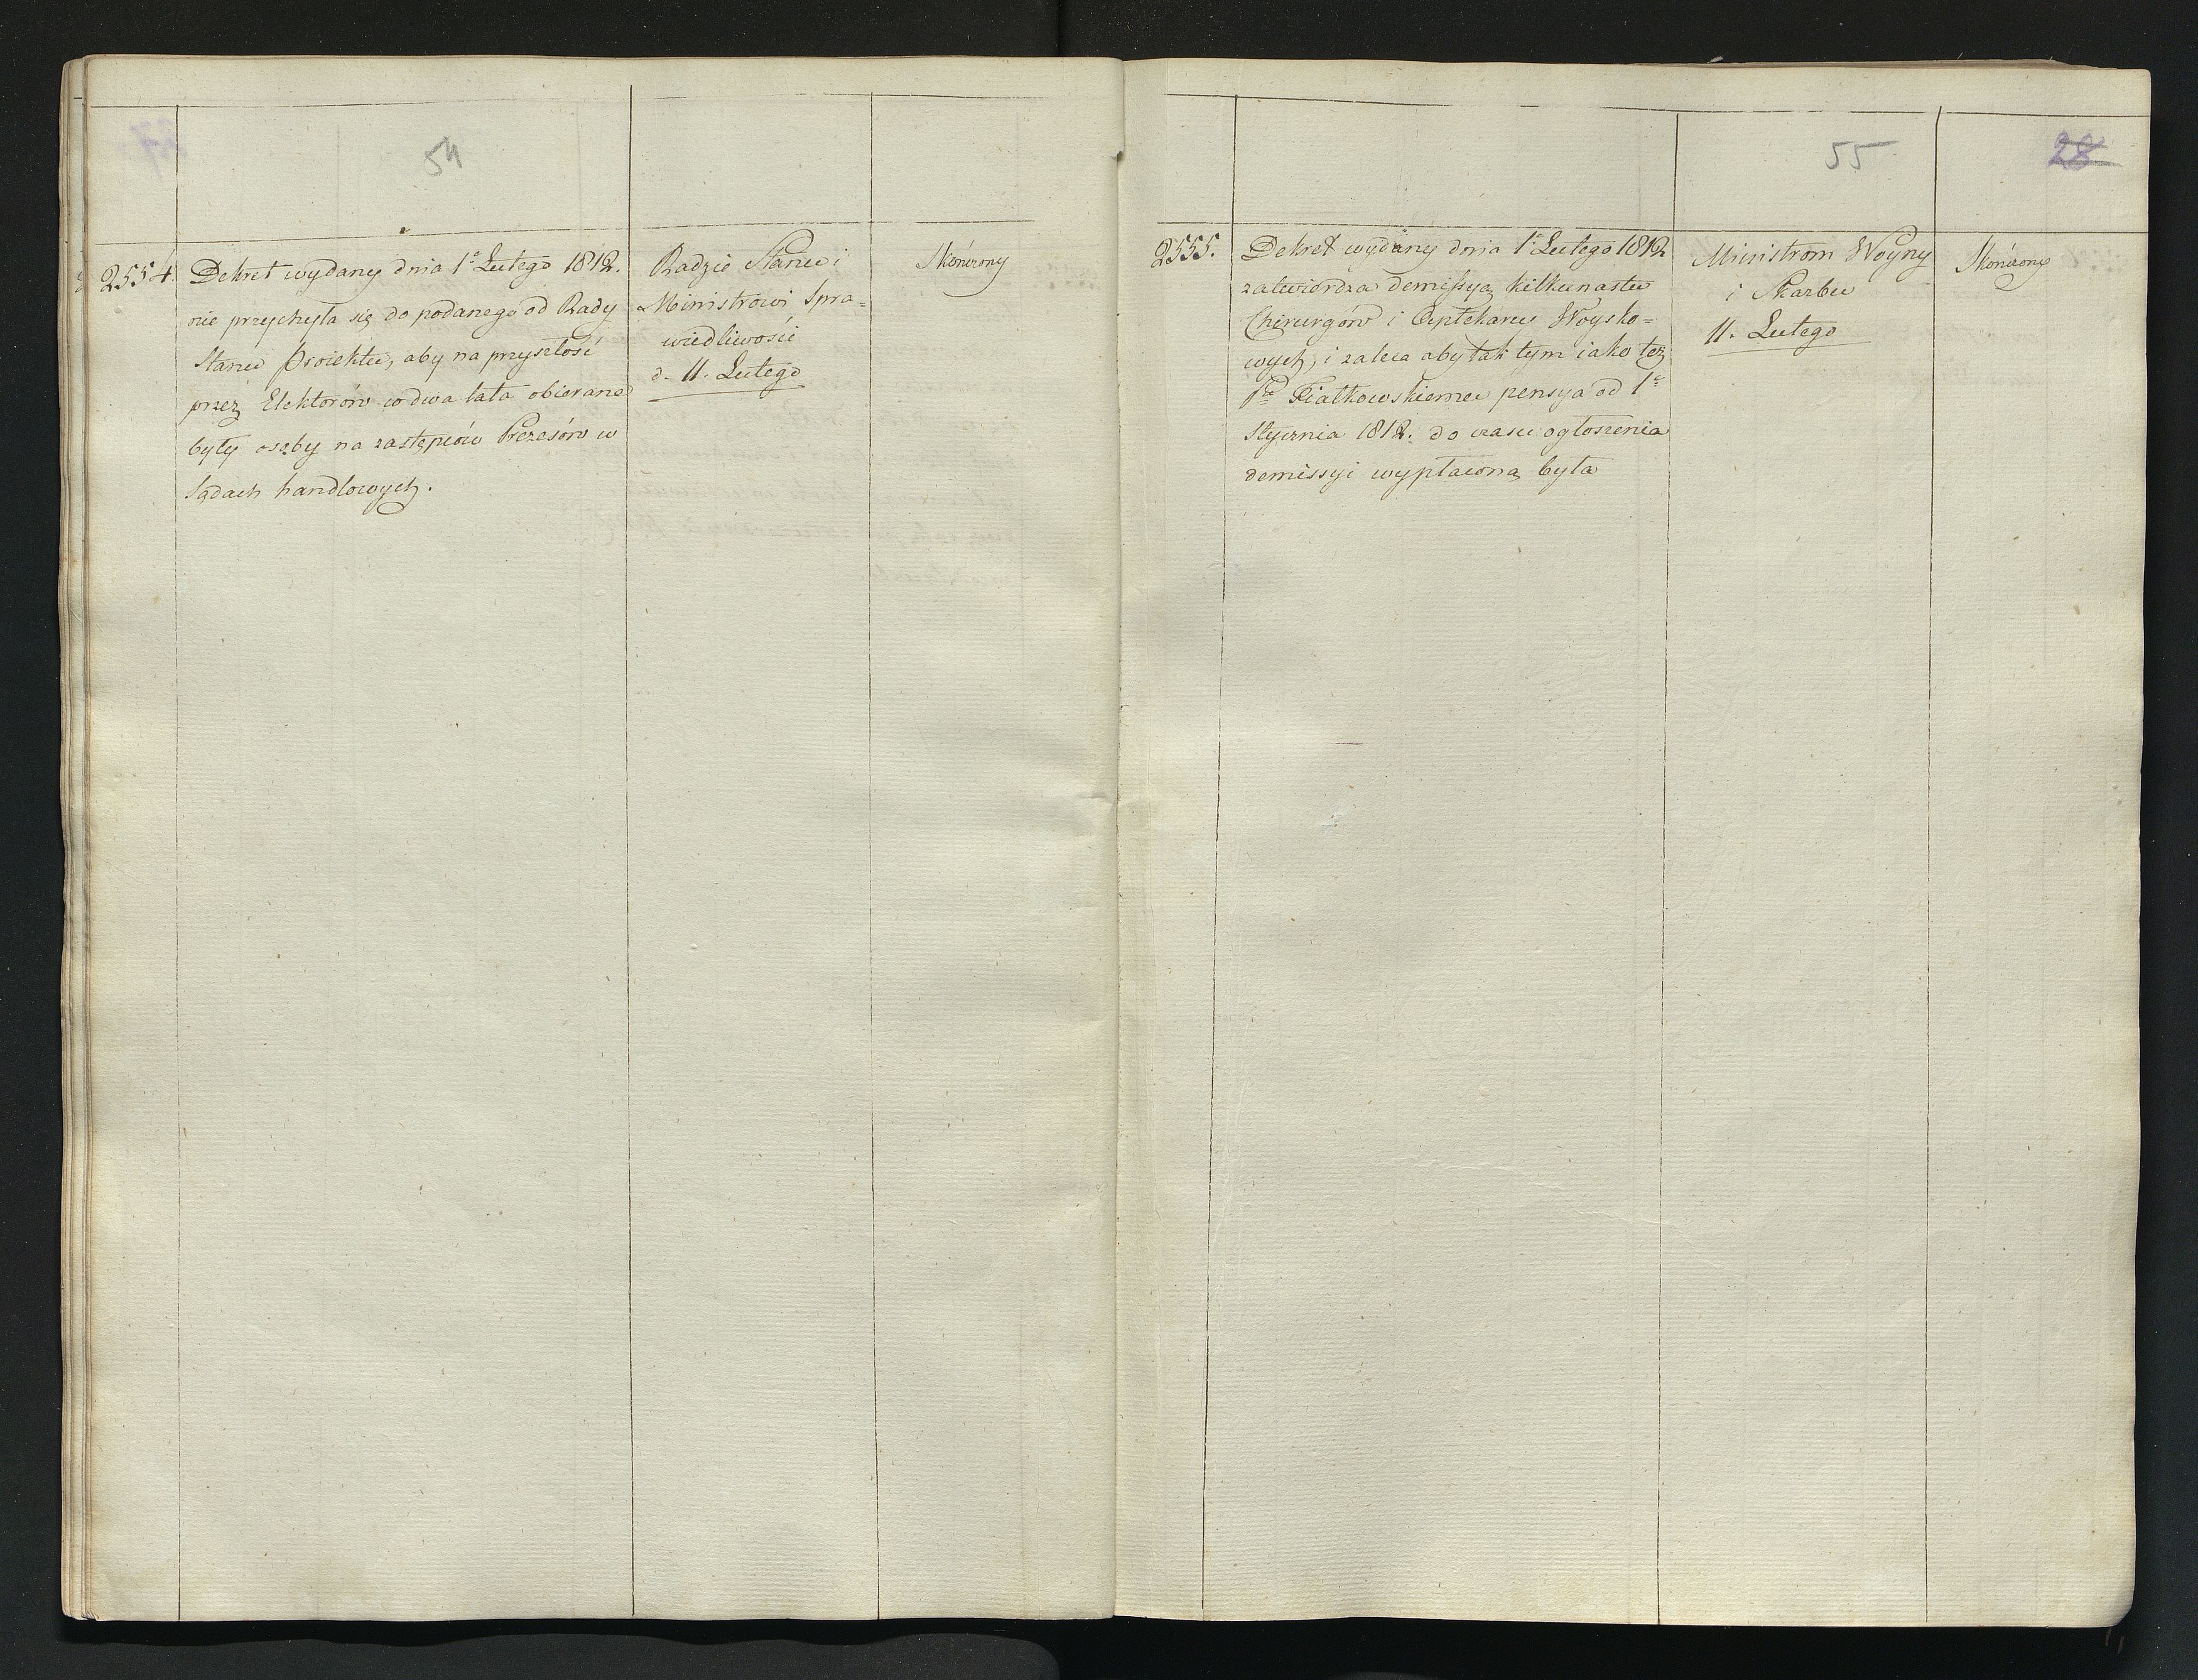 54
2554.
Dekret wydany dnia 1º Lutego 1812.
nie przychyla się do podanego od Rady
Stanu Proiektu, aby na przyszłość
przez Elektorów co dwa lata obierane
były osoby na zastępców Prezesów w
Sądach handlowych.
Radzie Stanu i
Ministrowi Spra=
wiedliwości
d. 11. Lutego
Skończony
55
28
2555.
Dekret wydany dnia 1º Lutego 1812
zatwierdza demissyą kilkunastu
Chirurgów i Aptekarzy Woysko=
wych, i zaleca aby tak tym iako też
Fiałkowskiemu pensya od 1º
Stycznia 1812. do czasu ogłoszenia
demissyi wypłaconą była
Ministrom Woyny
i Skarbu
11. Lutego
Skończony